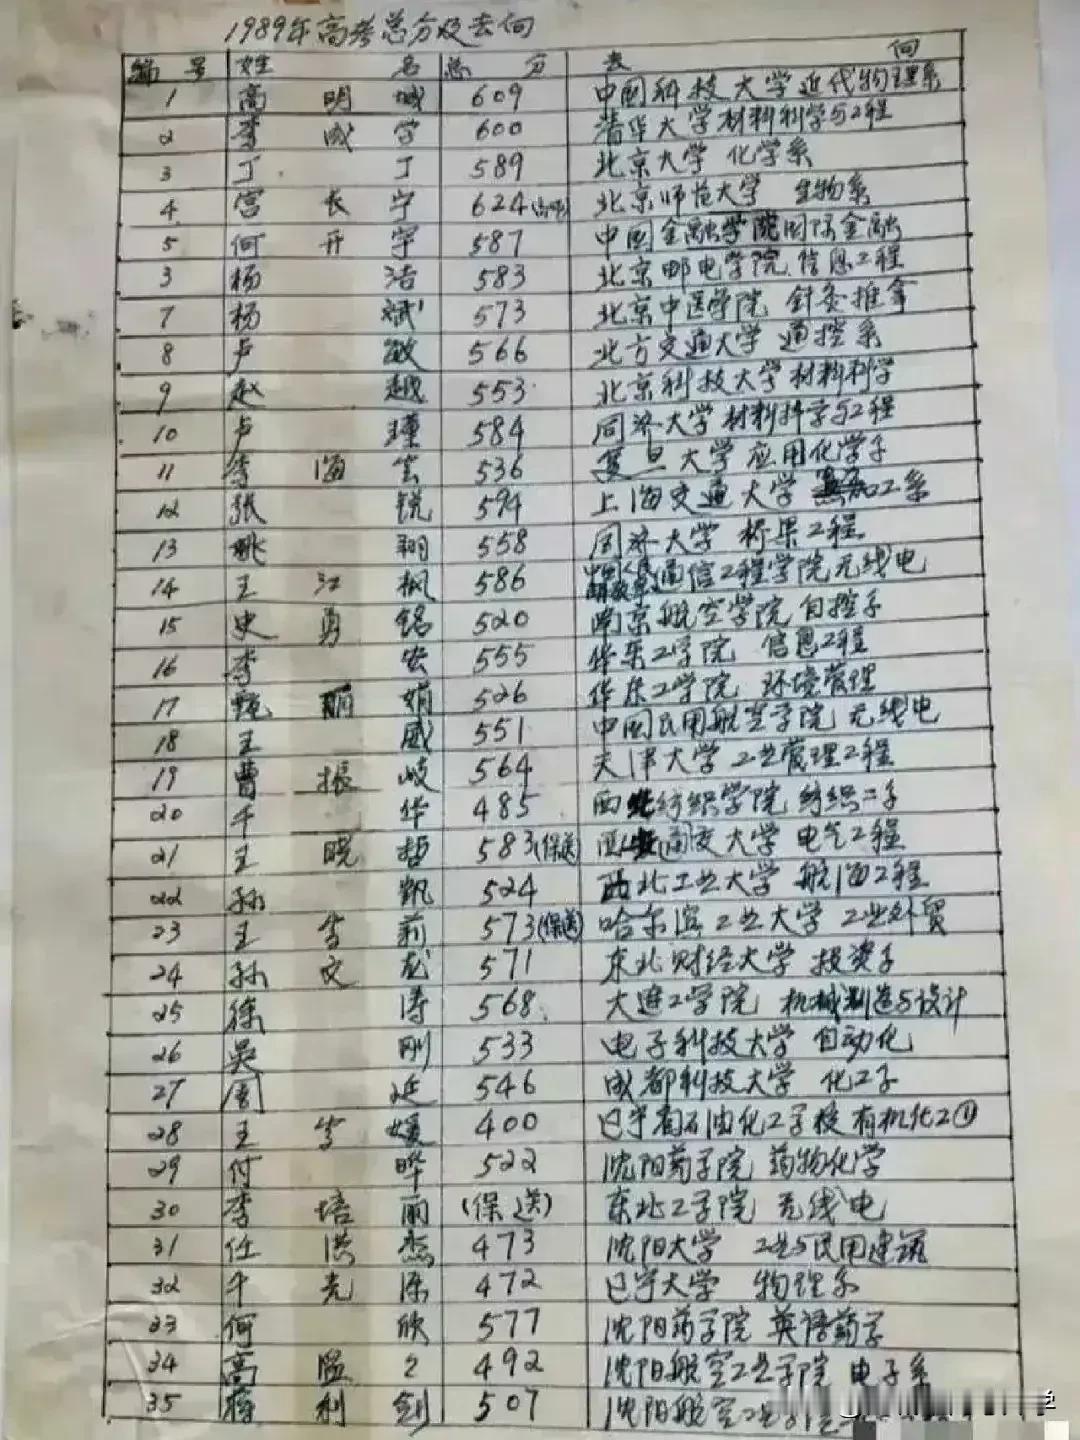 1989年高考总分及去向
编号 姓名 总分 去向
1 高明城 609 中国科技大学近代物理系
2 李威宇 600 清华大学材料科学与工程
3 丁丁 589 北京大学 化学系
4 宫长宁 624 北京师范大学 生物系
5 何开宇 587 中国金融学院国际金融
3 杨浩 583 北京邮电学院 信息工程
7 杨斌 573 北京中医学院 针灸推拿
8 卢敏 566 北方交通大学 通控系
9 赵越 553 北京科技大学材料科学
10 卢瑾 584 同济大学材料科学与工程
11 李海云 536 复旦大学 应用化学系
12 张锐 594 上海交通大学 加工系
13 姚翔 558 同济大学 桥梁工程
14 王江枫 586 通信工程学院无线电
15 史勇铭 520 南京航空学院 自控系
16 李宏 555 华东工学院 信息工程
17 甄丽娟 526 华东工学院 环境管理
18 王威 551 中国民用航空学院 无线电
19 曹振岐 564 天津大学 工业管理工程
20 于华 485 西北纺织学院 纺织工系
21 王晓哲 583(保送) 西安交大学 电气工程
22 孙凯 524 西北工业大学 航海工程
23 王雪莉 573(保送) 哈尔滨工业大学 工业外贸
24 孙文龙 571 东北财经大学 投资系
25 徐涛 568 大连工学院 机械制造与设计
26 吴刚 533 电子科技大学 自动化
27 周延 546 成都科技大学 化工系
28 王雪媛 400 辽宁省石油化工学校 有机化工①
29 付晔 522 沈阳药学院 药物化学
30 李培丽 (保送) 东北工学院 无线电
31 任洪杰 473 沈阳大学 工业与民用建筑
32 于光深 472 辽宁大学 物理系
33 何欣 577 沈阳药学院 英语药学
34 高 492 沈阳航空工业学院 电子系
35 蒋利剑 507 沈阳航空工业学院